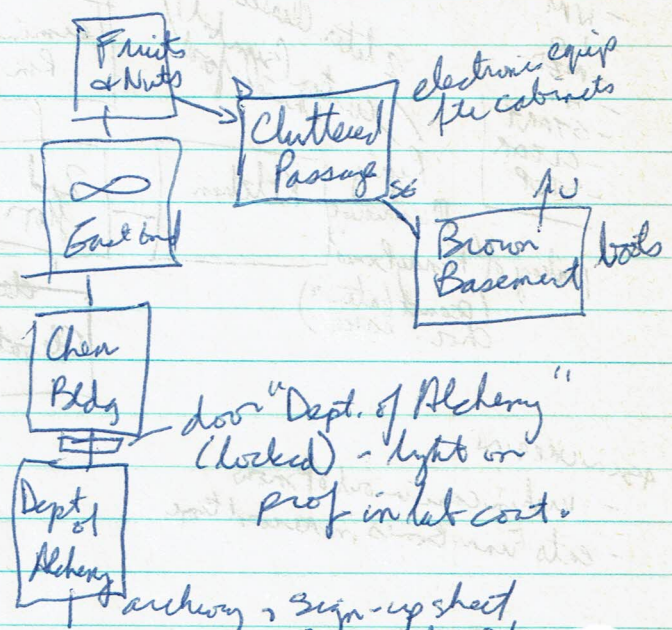 Fruits
& Nuts
electronic equip
file cabinets
Cluttered
Passage
SE
∞
East End
U
Brown
Basement
boots
Chem
Bldg
door "Dept. of Alchemy"
(locked) - light on
prof in lab coat.
Dept
of
Alchemy
archway, sign-up sheet